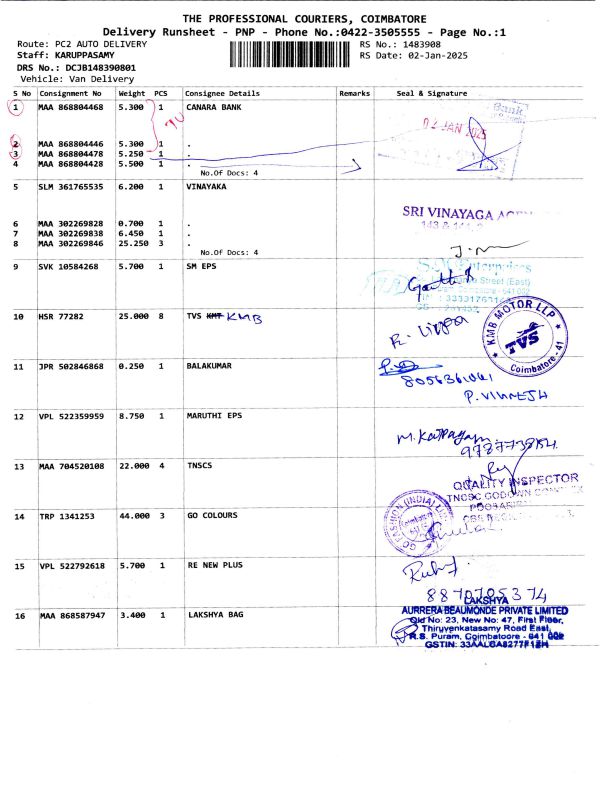 THE PROFESSIONAL COURIERS, COIMBATORE
Delivery Runsheet - PNP - Phone No.:0422-3505555 - Page No.:1
Route: PC2 AUTO DELIVERY
RS No.: 1483908
Staff: KARUPPASAMY
RS Date: 02-Jan-2025
DRS No.: DCJB148390801
Vehicle: Van Delivery
S No Consignment No Weight PCS Consignee Details Remarks Seal & Signature
1 MAA 868804468 5.300 1 CANARA BANK
Bank
02 JAN 2025
2 MAA 868804446 5.300 1 .
3 MAA 868804478 5.250 1 .
4 MAA 868804428 5.500 1 .
No.Of Docs: 4
5 SLM 361765535 6.200 1 VINAYAKA
SRI VINAYAGA
6 MAA 302269828 0.700 1 .
7 MAA 302269838 6.450 1 .
8 MAA 302269846 25.250 3 .
No.Of Docs: 4
9 SVK 10584268 5.700 1 SM EPS
Enterprises
Street (East)
Coimbatore - 641 002
10 HSR 77282 25.000 8 TVS KMT KMB
KMB MOTOR LLP
TVS
Coimbatore - 41
11 JPR 502846868 0.250 1 BALAKUMAR
8056361041
P. VIGNESH
12 VPL 522359959 8.750 1 MARUTHI EPS
M. Karpagam
13 MAA 704520108 22.000 4 TNSCS
QUALITY INSPECTOR
TNCSC GODOWN COMPLEX
14 TRP 1341253 44.000 3 GO COLOURS
GO FASHION (INDIA)
Coimbatore
15 VPL 522792618 5.700 1 RE NEW PLUS
8870705374
16 MAA 868587947 3.400 1 LAKSHYA BAG
LAKSHYA
AURRERA BEAUMONDE PRIVATE LIMITED
Old No: 23, New No: 47, First Floor,
Thiruvenkatasamy Road East,
R.S. Puram, Coimbatoore - 641 002